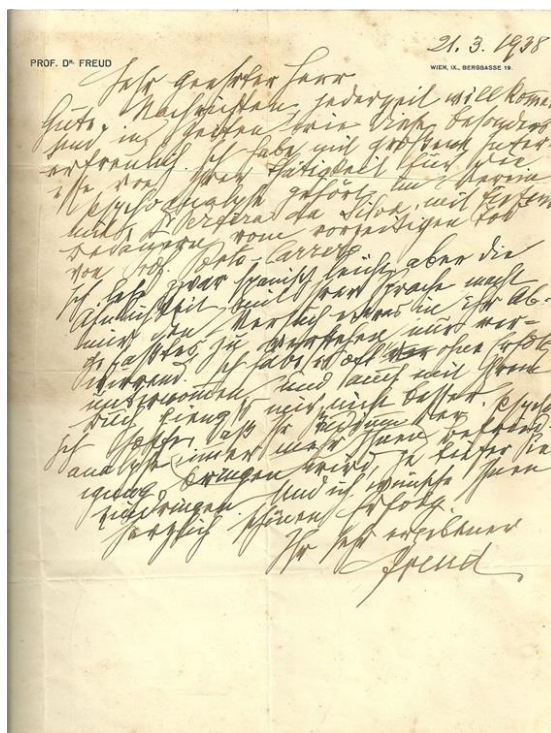 21. 3. 1938
PROF. DR. FREUD
WIEN, IX., BERGGASSE 19.
Sehr geehrter Herr
Gute Nachrichten, jederzeit willkommen
sind in Zeiten wie diese besonders
erfreulich. Ich habe mit großem Inter-
esse von Ihrer Thätigkeit für die
Psychoanalyse gehört im Verein
mit Dr Pereira da Silva, mit
Bedauern vom vorzeitigen Tod
von Prof. Porto-Carrero
Ich lese zwar spanisch leicht, aber die
Ähnlichkeit mit Ihrer Sprache macht
mir den Versuch etwas in ihr Ab-
gefaßtes zu verstehen nur ver-
wirrend. Ich habe es oft ohne Erfolg
unternommen und auch mit Ihrem
Buch gieng's mir nicht besser.
Ich hoffe, daß Ihr Studium der Psycho-
analyse immer mehr Ihnen Befriedi-
gung bringen wird, je tiefer Sie
eindringen. Und ich wünsche Ihnen
herzlich schönen Erfolg.
Ihr sehr ergebener
Freud